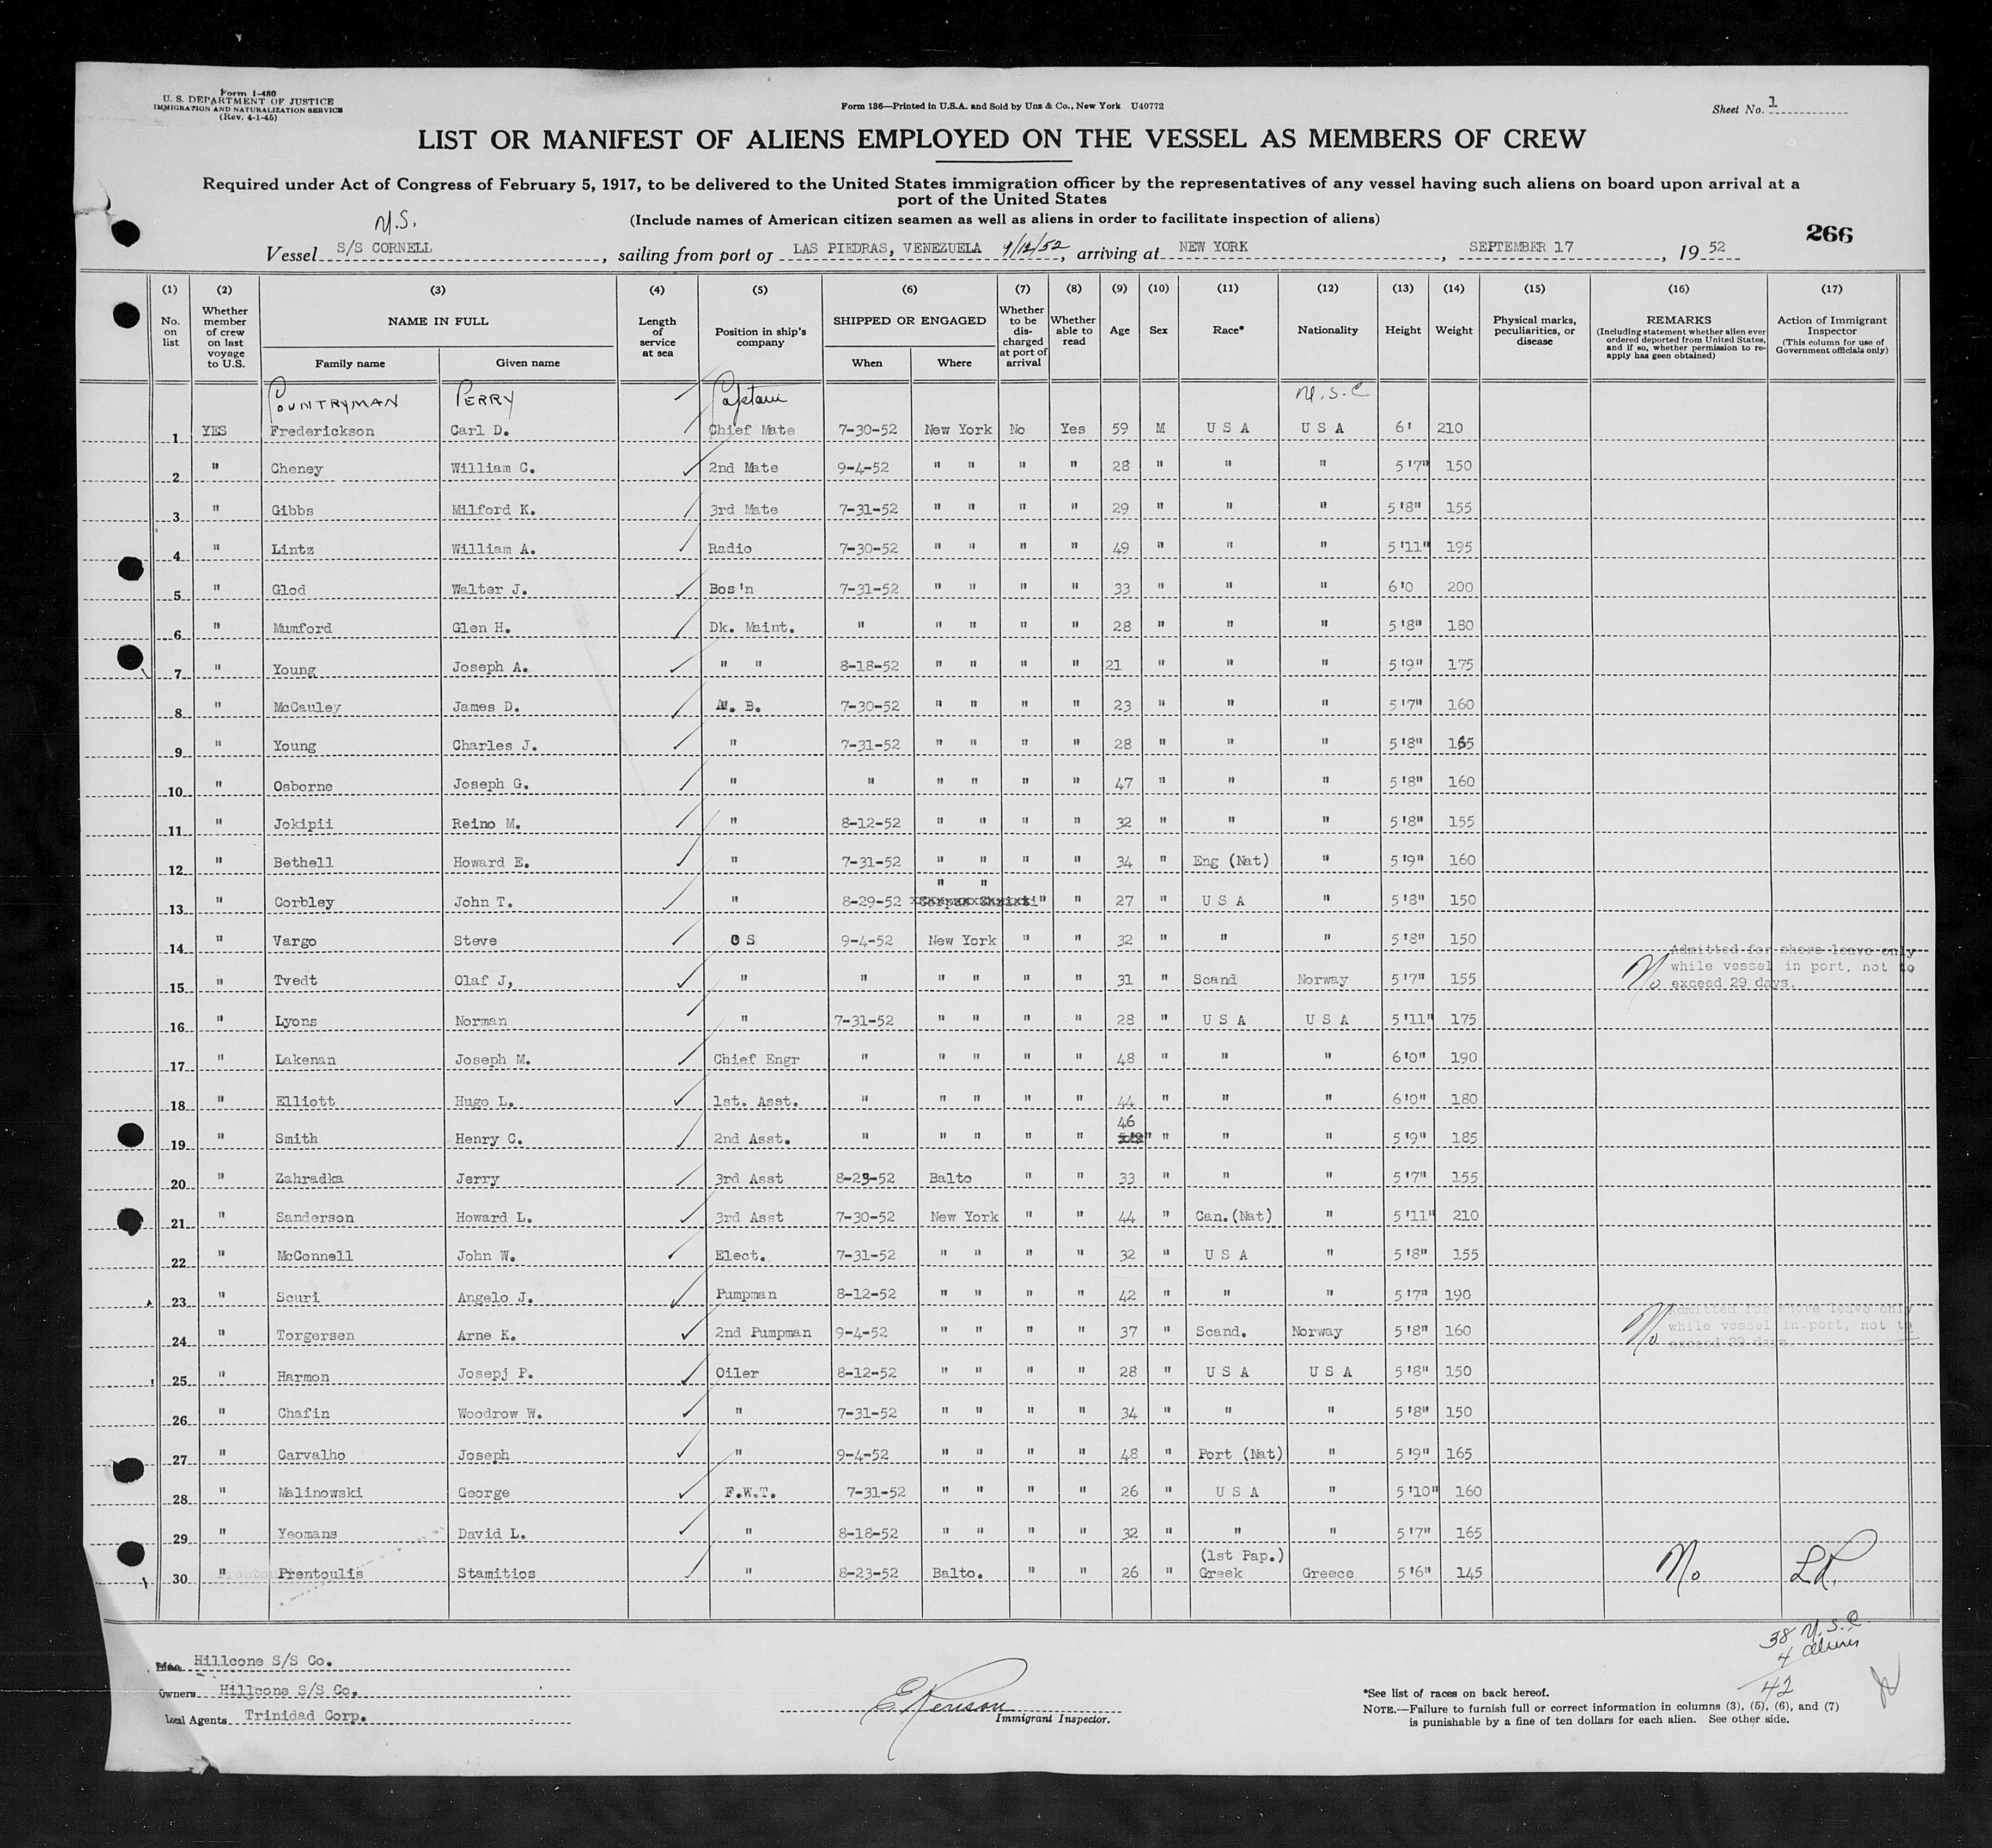 Form I-480
U. S. DEPARTMENT OF JUSTICE
IMMIGRATION AND NATURALIZATION SERVICE
(Rev. 4-1-45)
Form 136—Printed in U.S.A. and Sold by Unz & Co., New York U40772
Sheet No. 1
LIST OR MANIFEST OF ALIENS EMPLOYED ON THE VESSEL AS MEMBERS OF CREW
Required under Act of Congress of February 5, 1917, to be delivered to the United States immigration officer by the representatives of any vessel having such aliens on board upon arrival at a
port of the United States
(Include names of American citizen seamen as well as aliens in order to facilitate inspection of aliens)
266
Vessel S/S CORNELL, sailing from port of LAS PIEDRAS, VENEZUELA 9/12/52, arriving at NEW YORK, SEPTEMBER 17, 19 52
(1) No. on list (2) Whether member of crew on last voyage to U.S. (3) NAME IN FULL Family name Given name (4) Length of service at sea (5) Position in ship's company (6) SHIPPED OR ENGAGED When Where (7) Whether to be discharged at port of arrival (8) Whether able to read (9) Age (10) Sex (11) Race* (12) Nationality (13) Height (14) Weight (15) Physical marks, peculiarities, or disease (16) REMARKS (Including statement whether alien ever ordered deported from United States, and if so, whether permission to re-apply has geen obtained) (17) Action of Immigrant Inspector (This column for use of Government officials only)
COUNTRYMAN PERRY Captain U.S.C
1 YES Frederickson Carl D. Chief Mate 7-30-52 New York No Yes 59 M U S A U S A 6' 210
2 " Cheney William C. 2nd Mate 9-4-52 " " " " 28 " " " 5'7" 150
3 " Gibbs Milford K. 3rd Mate 7-31-52 " " " " 29 " " " 5'8" 155
4 " Lintz William A. Radio 7-30-52 " " " " 49 " " " 5'11" 195
5 " Glod Walter J. Bos'n 7-31-52 " " " " 33 " " " 6'0 200
6 " Mumford Glen H. Dk. Maint. " " " " " 28 " " " 5'8" 180
7 " Young Joseph A. " " 8-18-52 " " " " 21 " " " 5'9" 175
8 " McCauley James D. A. B. 7-30-52 " " " " 23 " " " 5'7" 160
9 " Young Charles J. " 7-31-52 " " " " 28 " " " 5'8" 165
10 " Osborne Joseph G. " " " " " " 47 " " " 5'8" 160
11 " Jokipii Reino M. " 8-12-52 " " " " 32 " " " 5'8" 155
12 " Bethell Howard E. " 7-31-52 " " " " 34 " Eng (Nat) " 5'9" 160
13 " Corbley John T. " 8-29-52 " " " " 27 " U S A " 5'8" 150
14 " Vargo Steve O S 9-4-52 New York " " 32 " " " 5'8" 150
15 " Tvedt Olaf J, " " " " " " 31 " Scand Norway 5'7" 155 No Admitted for shore leave only while vessel in port, not to exceed 29 days.
16 " Lyons Norman " 7-31-52 " " " " 28 " U S A U S A 5'11" 175
17 " Lakenan Joseph M. Chief Engr " " " " " 48 " " " 6'0" 190
18 " Elliott Hugo L. 1st. Asst. " " " " " 44 " " " 6'0" 180
19 " Smith Henry C. 2nd Asst. " " " " " 46 " " " 5'9" 185
20 " Zahradka Jerry 3rd Asst 8-23-52 Balto " " 33 " " " 5'7" 155
21 " Sanderson Howard L. 3rd Asst 7-30-52 New York " " 44 " Can.(Nat) " 5'11" 210
22 " McConnell John W. Elect. 7-31-52 " " " " 32 " U S A " 5'8" 155
23 " Scuri Angelo J. Pumpman 8-12-52 " " " " 42 " " " 5'7" 190
24 " Torgersen Arne K. 2nd Pumpman 9-4-52 " " " " 37 " Scand. Norway 5'8" 160 No Admitted for shore leave only while vessel in port, not to exceed 29 days.
25 " Harmon Josepj P. Oiler 8-12-52 " " " " 28 " U S A U S A 5'8" 150
26 " Chafin Woodrow W. " 7-31-52 " " " " 34 " " " 5'8" 150
27 " Carvalho Joseph " 9-4-52 " " " " 48 " Port (Nat) " 5'9" 165
28 " Malinowski George F.W.T. 7-31-52 " " " " 26 " U S A " 5'10" 160
29 " Yeomans David L. " 8-18-52 " " " " 32 " " " 5'7" 165
30 " Prentoulis Stamitios " 8-23-52 Balto. " " 26 " (1st Pap.) Greek Greece 5'6" 145 No L.R.
38 U.S.C.
4 aliens
42
Line Hillcone S/S Co.
Owners Hillcone S/S Co.
Local Agents Trinidad Corp.
Immigrant Inspector.
*See list of races on back hereof.
NOTE.—Failure to furnish full or correct information in columns (3), (5), (6), and (7)
is punishable by a fine of ten dollars for each alien. See other side.